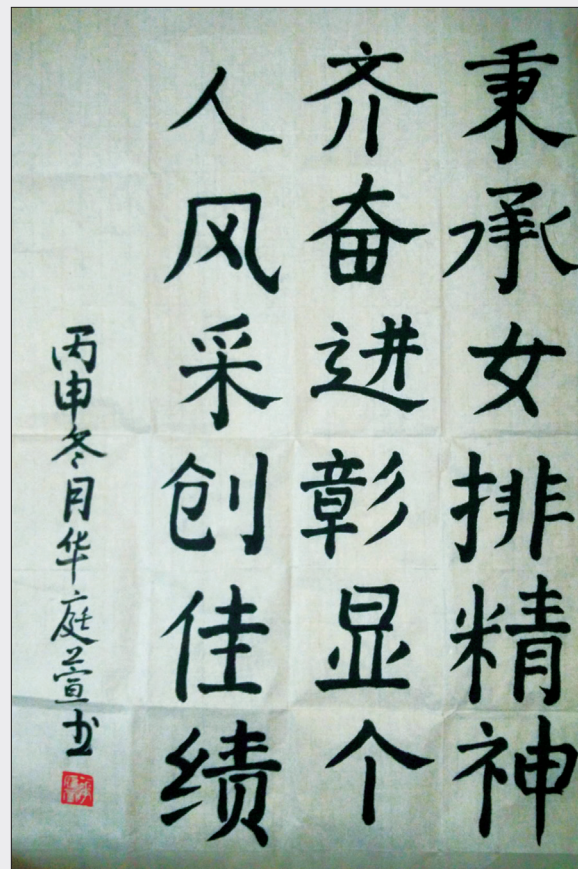 秉承女排精神
齐奋进彰显个
人风采创佳绩
丙申冬月华庭萱书